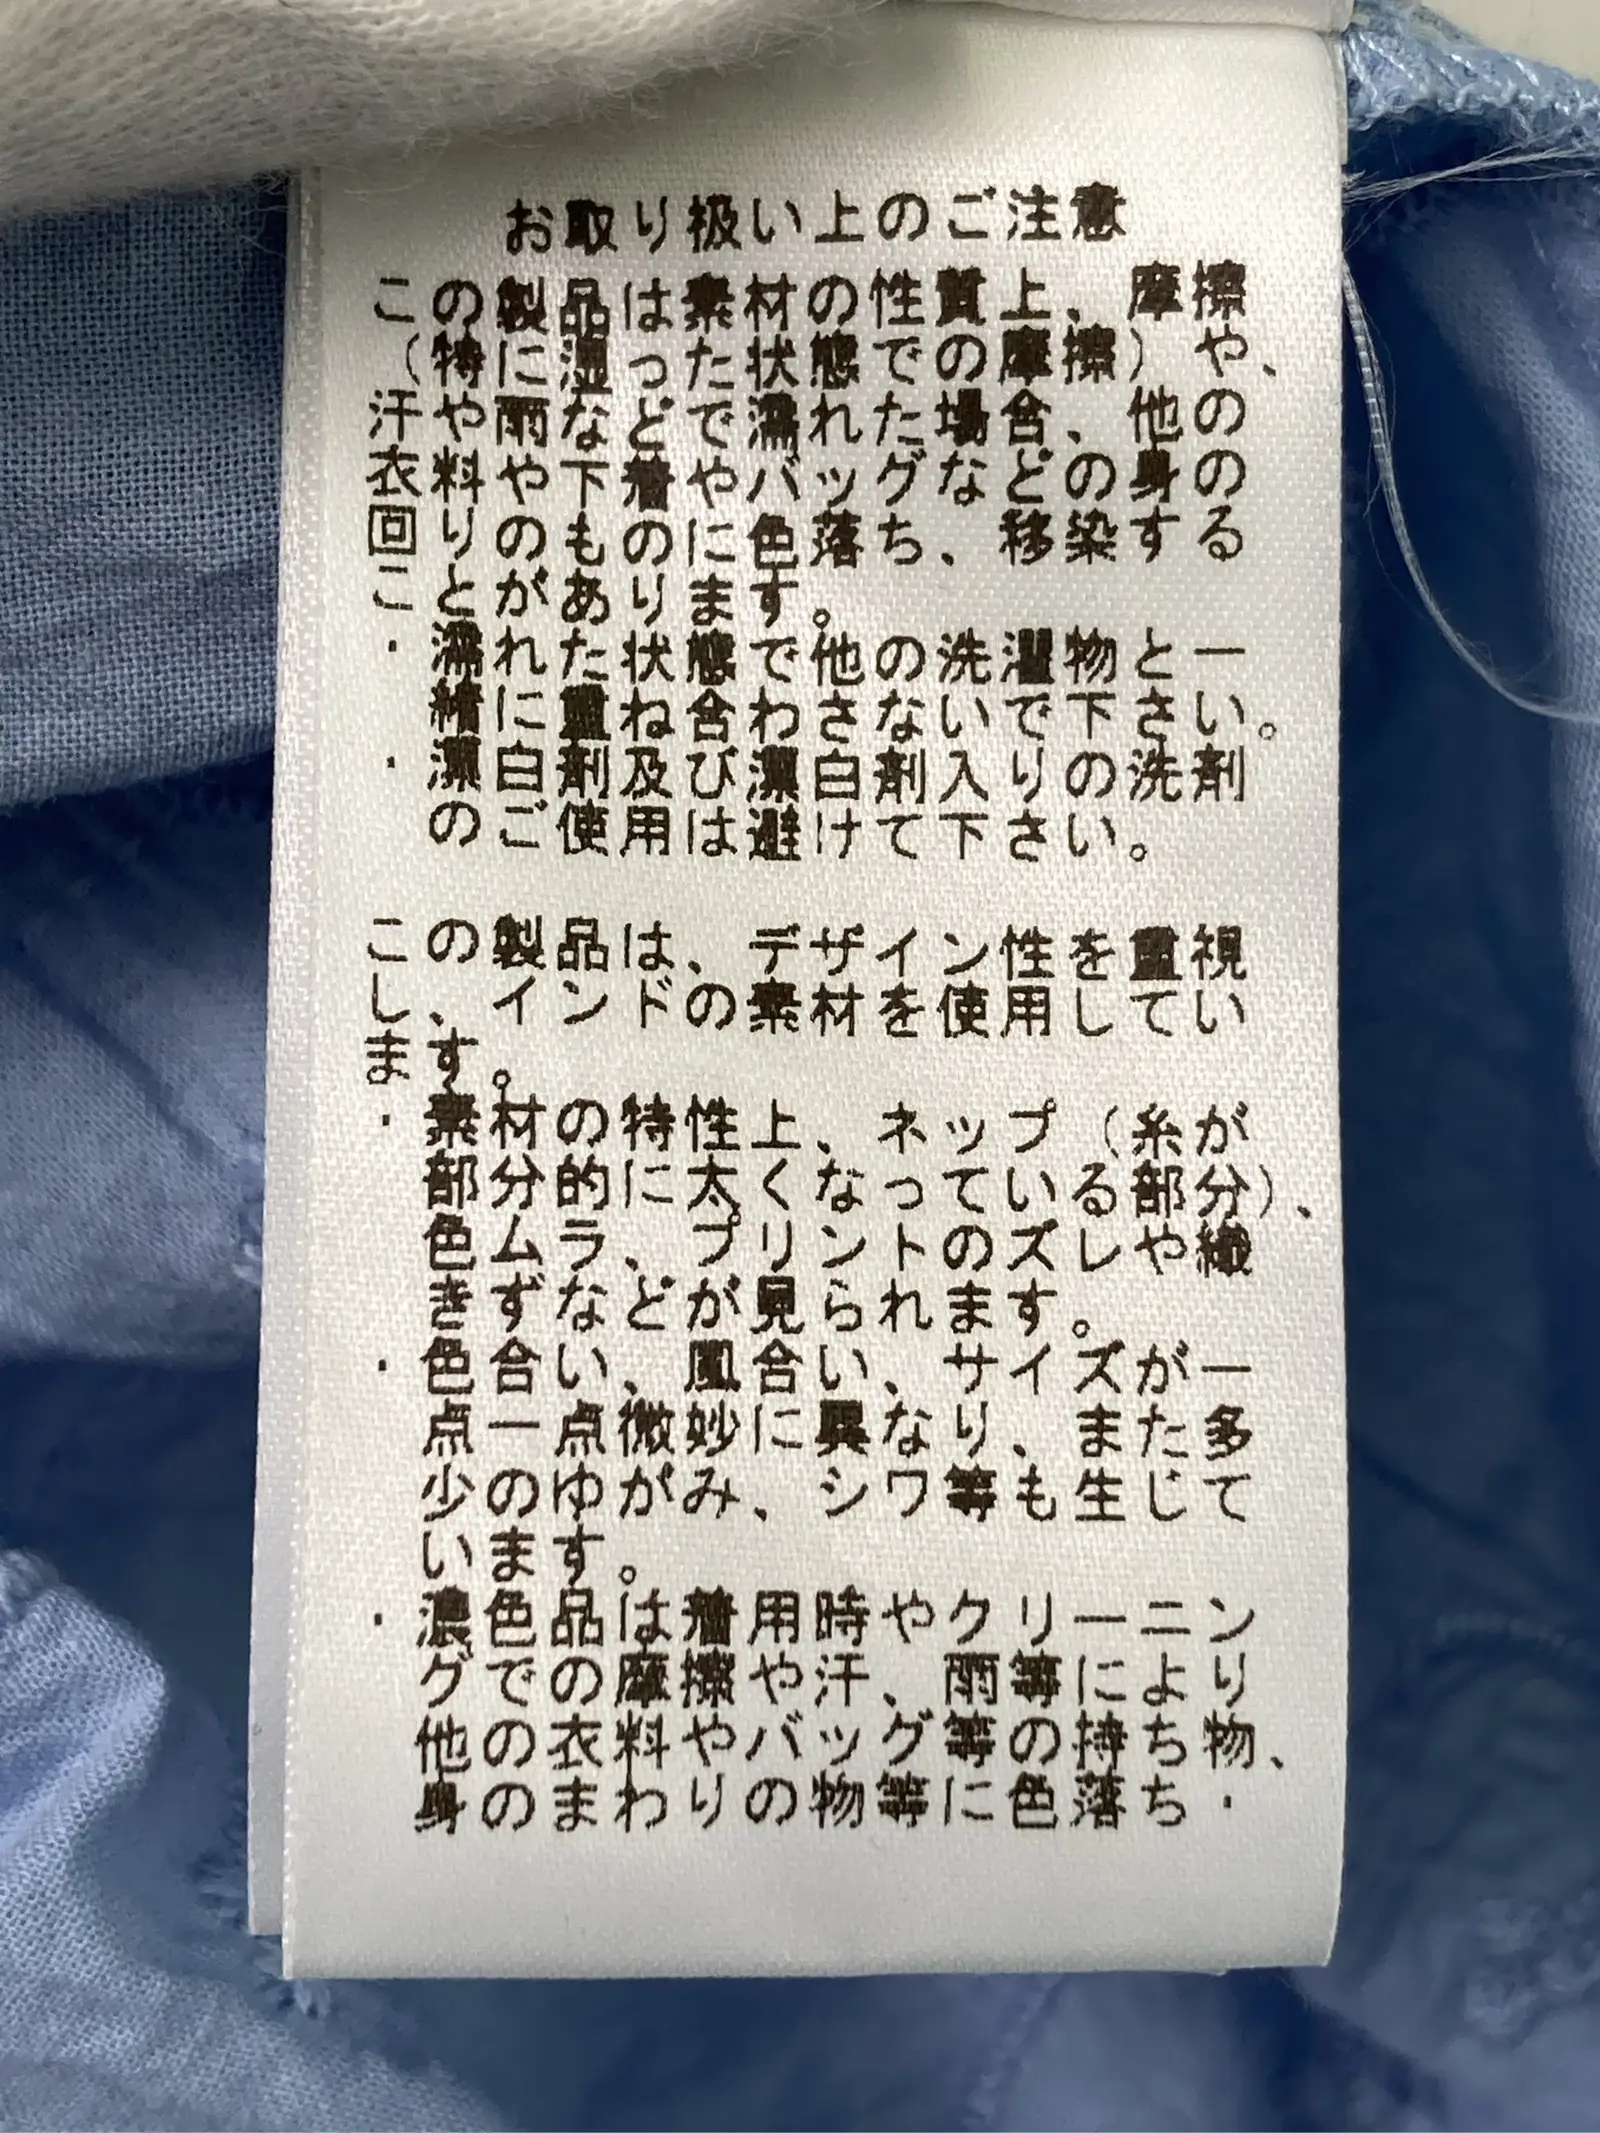 お取り扱い上のご注意
この製品は素材の性質上、摩擦
（特に湿った状態での摩擦）や、
汗や雨などで濡れた場合、他の
衣料や下着やバッグなど、身の
回りのものに色落ち、移染する
ことがあります。
・濡れた状態で他の洗濯物と一
緒に重ね合わさないで下さい。
・漂白剤及び漂白剤入りの洗剤
のご使用は避けて下さい。
この製品は、デザイン性を重視
し、インドの素材を使用してい
ます。
・素材の特性上、ネップ（糸が
部分的に太くなっている部分）、
色ムラ、プリントのズレや織
きずなど、が見られます。
・色合い、風合い、サイズが一
点一点微妙に異なり、また多
少のゆがみ、シワ等も生じて
います。
・濃色品は着用時やクリーニン
グでの摩擦や汗、雨等により
他の衣料やバッグ等の持ち物、
身のまわりの物等に色落ち・